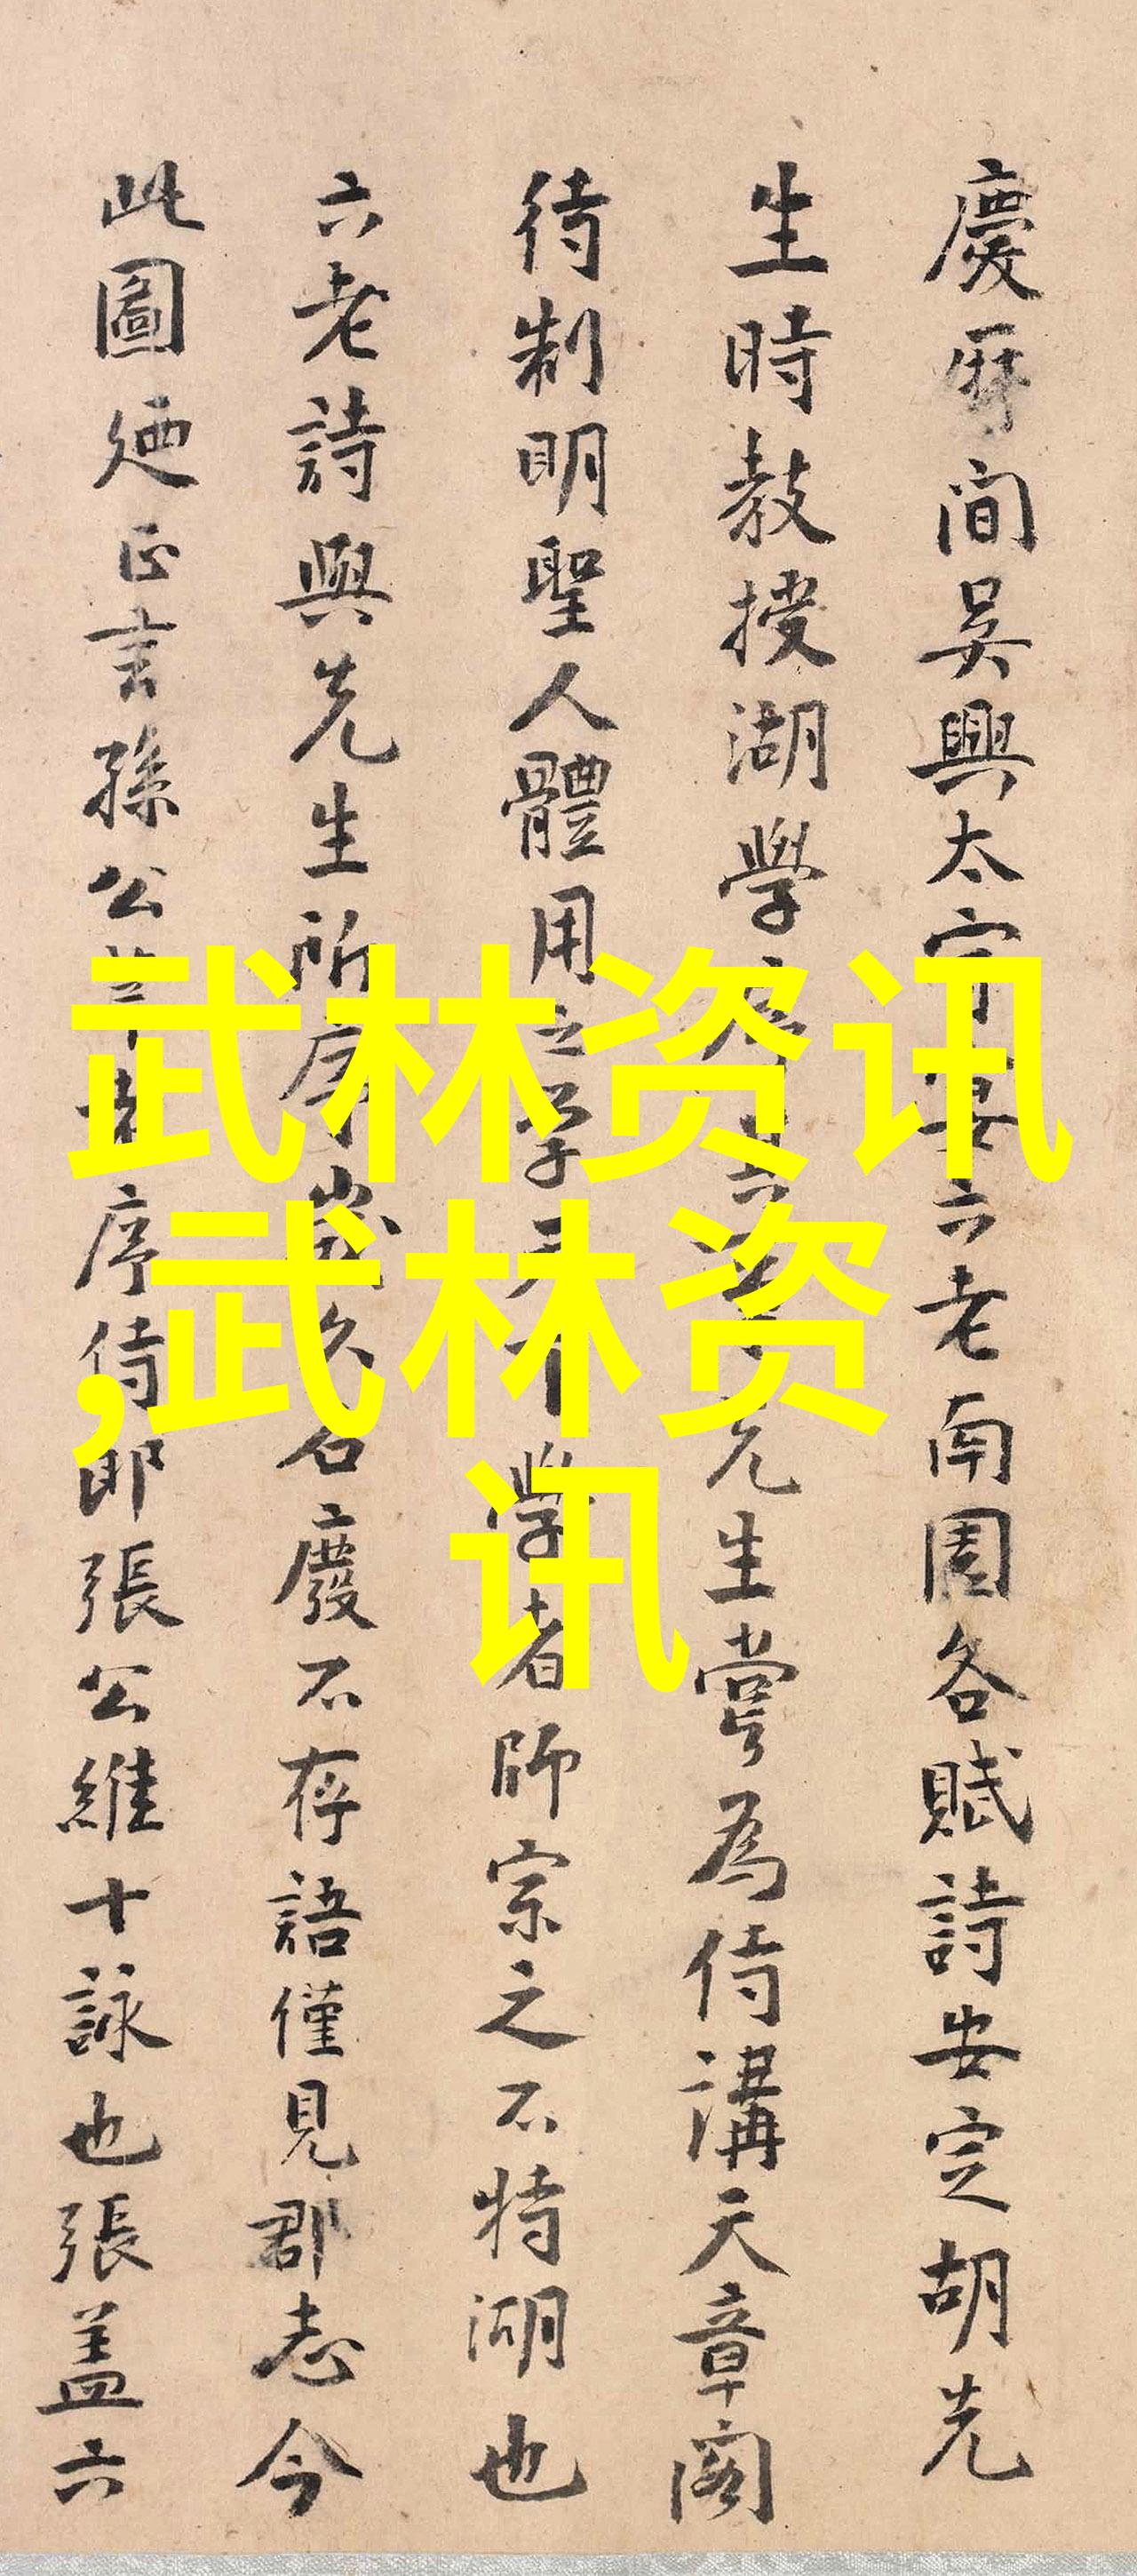 慶曆間吳興太守宴六老南園各賦詩安定胡先
生時教授湖學序其事先生嘗為侍講天章閣
待制明聖人體用之學天下學者師宗之不特湖也
六老詩與先生所序歲久石廢不存語僅見郡志今
此圖廼正言孫公莘老序侍郎張公維十詠也張蓋六
武林资讯
,武林资
讯